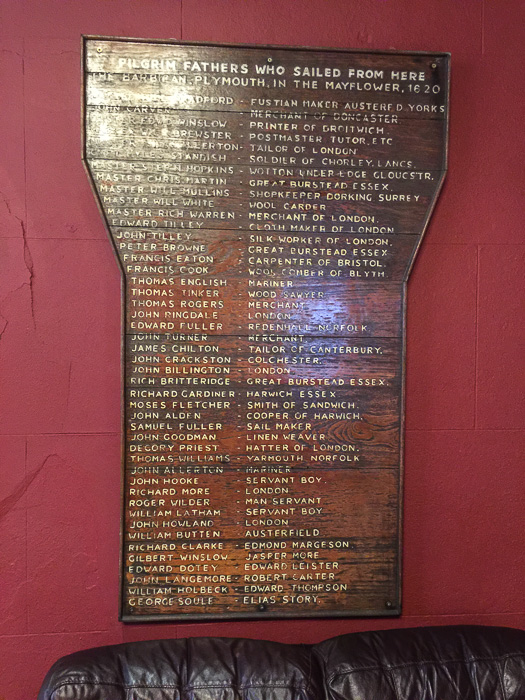 PILGRIM FATHERS WHO SAILED FROM HERE
THE BARBICAN, PLYMOUTH, IN THE MAYFLOWER, 1620
BRADFORD - FUSTIAN MAKER AUSTERFD YORKS
JOHN CARVER - MERCHANT OF DONCASTER
WINSLOW - PRINTER OF DROITWICH.
BREWSTER - POSTMASTER TUTOR, ETC
ALLERTON - TAILOR OF LONDON
STANDISH - SOLDIER OF CHORLEY, LANCS.
HOPKINS - WOTTON UNDER EDGE GLOUCSTR.
MASTER CHRIS MARTIN - GREAT BURSTEAD ESSEX.
MASTER WILL MULLINS - SHOPKEEPER DORKING SURREY
MASTER WILL WHITE - WOOL CARDER
MASTER RICH WARREN - MERCHANT OF LONDON.
EDWARD TILLEY - CLOTH MAKER OF LONDON
JOHN TILLEY - SILK WORKER OF LONDON.
PETER BROWNE - GREAT BURSTEAD ESSEX
FRANCIS EATON - CARPENTER OF BRISTOL
FRANCIS COOK - WOOL COMBER OF BLYTH
THOMAS ENGLISH - MARINER
THOMAS TINKER - WOOD SAWYER
THOMAS ROGERS - MERCHANT
JOHN RINGDALE - LONDON
EDWARD FULLER - REDENHALL NORFOLK
JOHN TURNER - MERCHANT
JAMES CHILTON - TAILOR OF CANTERBURY.
JOHN CRACKSTON - COLCHESTER.
JOHN BILLINGTON - LONDON
RICH BRITTERIDGE - GREAT BURSTEAD ESSEX.
RICHARD GARDINER - HARWICH ESSEX
MOSES FLETCHER - SMITH OF SANDWICH.
JOHN ALDEN - COOPER OF HARWICH.
SAMUEL FULLER - SAIL MAKER
JOHN GOODMAN - LINEN WEAVER
DEGORY PRIEST - HATTER OF LONDON.
THOMAS WILLIAMS - YARMOUTH NORFOLK
JOHN ALLERTON - MARINER
JOHN HOOKE - SERVANT BOY.
RICHARD MORE - LONDON
ROGER WILDER - MAN SERVANT
WILLIAM LATHAM - SERVANT BOY.
JOHN HOWLAND - LONDON
WILLIAM BUTTEN - AUSTERFIELD
RICHARD CLARKE - EDMOND MARGESON.
GILBERT WINSLOW - JASPER MORE
EDWARD DOTEY - EDWARD LEISTER
JOHN LANGEMORE - ROBERT CARTER
WILLIAM HOLBECK - EDWARD THOMPSON
GEORGE SOULE - ELIAS STORY.